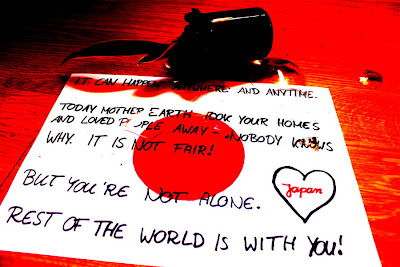 IT CAN HAPPEN ANYWHERE AND ANYTIME.
TODAY MOTHER EARTH TOOK YOUR HOMES
AND LOVED PEOPLE AWAY - NOBODY KNOWS
WHY. IT IS NOT FAIR!
BUT YOU'RE NOT ALONE.
Japan
REST OF THE WORLD IS WITH YOU!